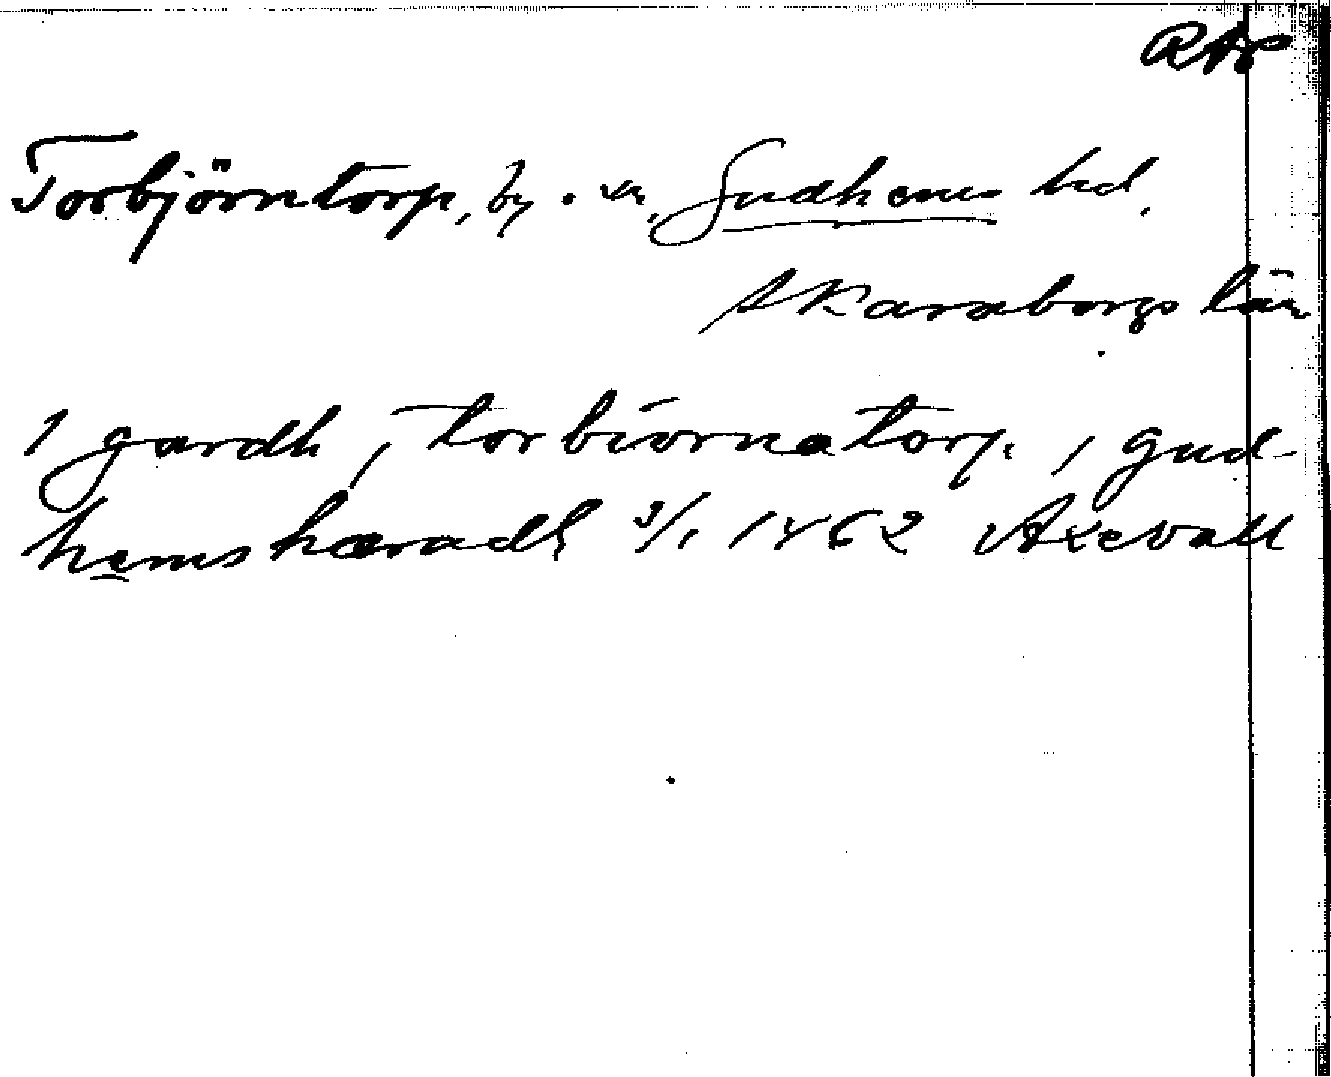 RAP
Torbjörntorp, by. sn, Gudhems hd.
Skaraborgs län
1 gardh j Torbiornatorp j gud-
hemshæradh 3/1 1462 Axevall